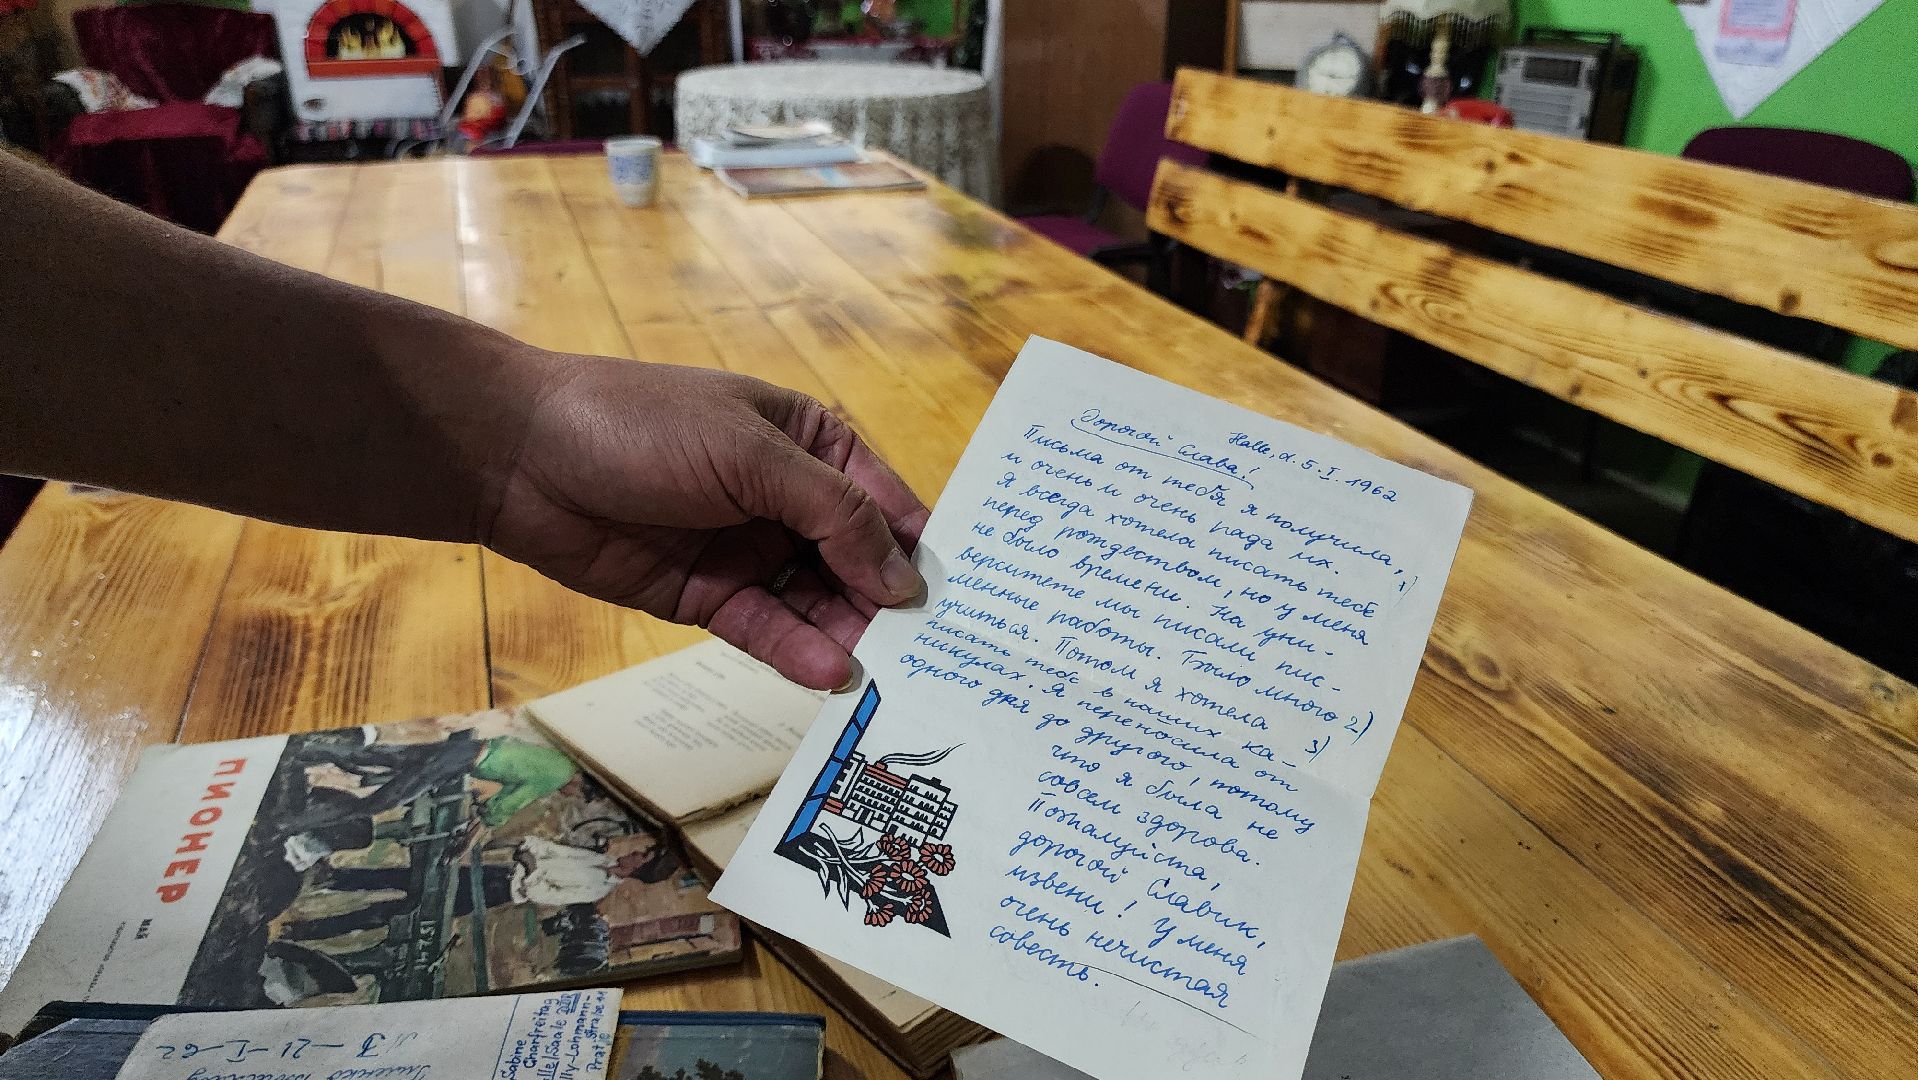 Halle, d. 5. I. 1962
Дорогой Слава!
Письма от тебя я получила,
и очень и очень рада их. 1)
Я всегда хотела писать тебе
перед рождеством, но у меня
не было времени. На уни-
верситете мы писали пис-
менные работы. Было много 2)
учиться. Потом я хотела 3)
писать тебе в наших ка-
никулах. Я переносила от
одного дня до другого, потому
что я была не
совсем здорова.
Пожалуйста,
дорогой Славик,
извени! У меня
очень нечистая
совесть.
ПИОНЕР
МАЙ
Sabine
Charfreitag
Halle/Saale
Willy-Lohmann-
Straße 11
21-I-62